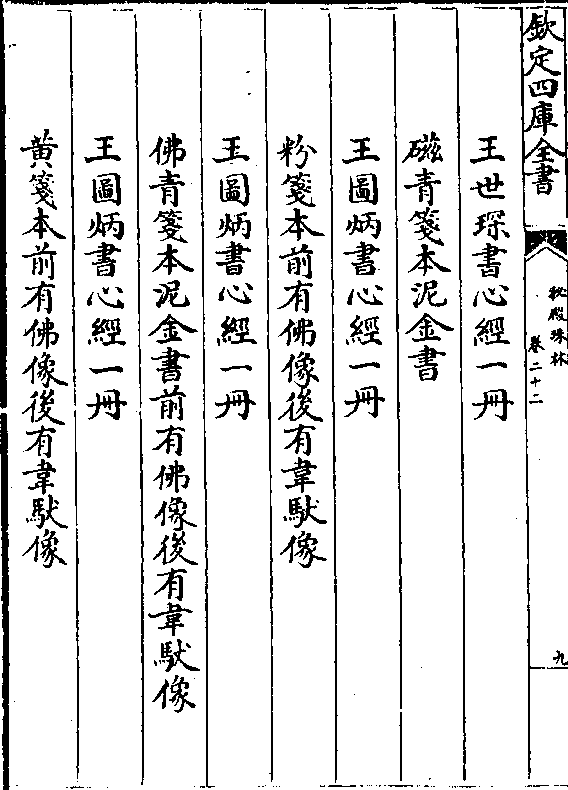 欽定四庫全書
秘殿珠林
卷二十二
九
王世琛書心經一冊
磁青箋本泥金書
王圖炳書心經一冊
粉箋本前有佛像後有韋馱像
王圖炳書心經一冊
佛青箋本泥金書前有佛像後有韋馱像
王圖炳書心經一冊
黃箋本前有佛像後有韋馱像